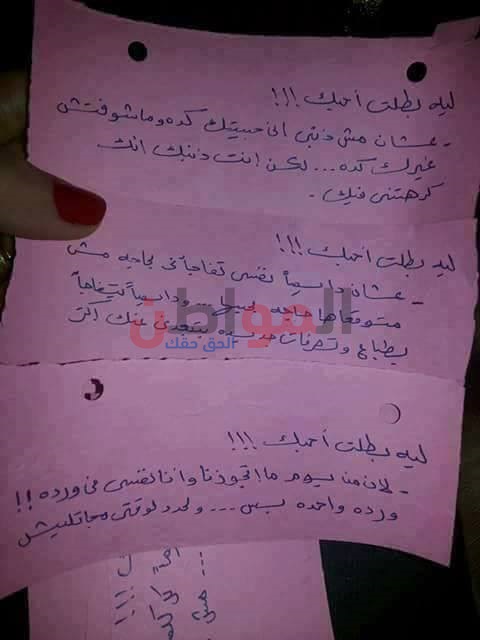 ليه بطلت أحبك !!!
- عشان مش ذنبي اني حبيتك كده وماشوفتش
غيرك كده ... لكن إنت ذنبك انك
كرهتني فيك .
ليه بطلت أحبك !!!
- عشان دايماً نفسى تفاجأنى بحاجه مش
متوقعاها حاجه بسيطه ... ودايماً بتفاجأ
بطباع وتصرفات جديده بتبعدنى عنك اكتر
المواطن
الحق حقك
ليه بطلت أحبك !!!
- لان من يوم ما اتجوزنا وانا نفسى فى ورده !!
ورده واحده بس ... ولحد دلوقتى مجاتليش